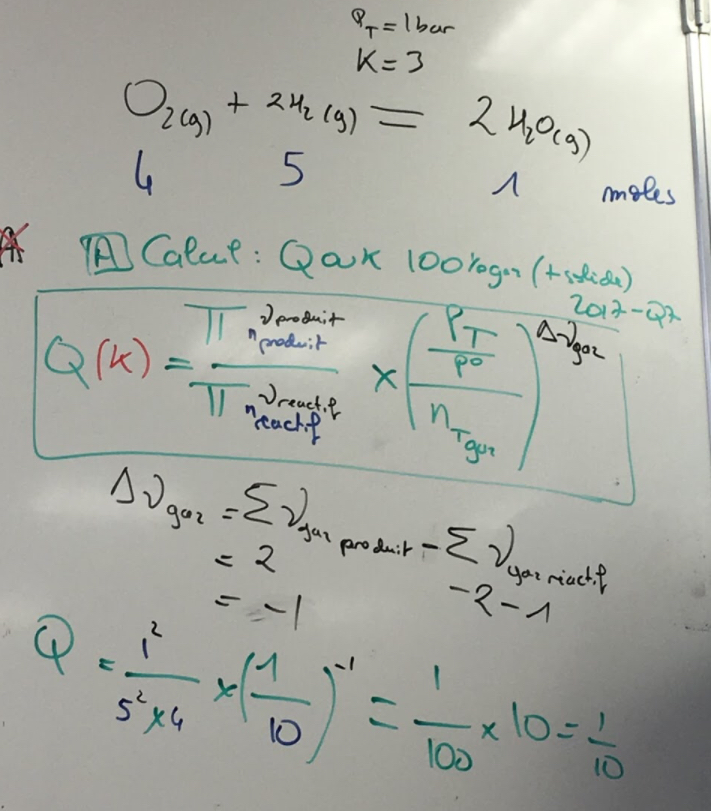 P_T = 1 bar
K = 3
O₂(g) + 2H₂(g) = 2H₂O(g)
4 5 1 moles
A Calcul : Q ou K 100% gaz (+ solide)
2017 - Q7
Q(K) = Π n_produit^ν produit / Π n_reactif^ν reactif × ( (P_T / P°) / n_T gaz )^Δν gaz
Δν gaz = Σ ν gaz produit - Σ ν gaz réactif
= 2 - 2 - 1
= -1
Q = 1² / 5² × 4 × ( 1 / 10 )^-1 = 1 / 100 × 10 = 1 / 10